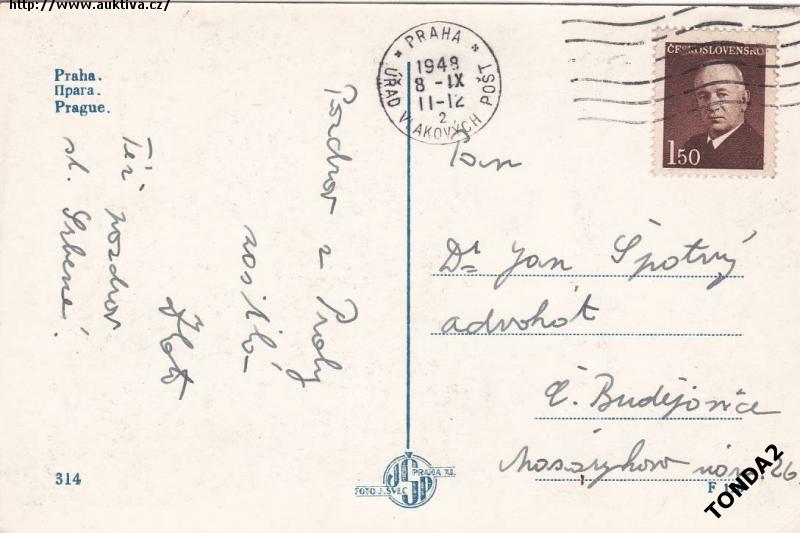 http://www.auktiva.cz/
Praha.
Прага.
Prague.
PRAHA
1948
8 -IX
11-12
2
ÚŘAD VLAKOVÝCH POŠT
ČESKOSLOVENSKO
1.50
Pozdrav z Prahy
posílá
Též pozdrav
sl.
Pan
Dr Jan Špotný
advokát
Č. Budějovice
Masarykovo nám. 26
314
PRAHA XI.
FOTO J. ŠVEC
JŠP
F 1
TONDA2